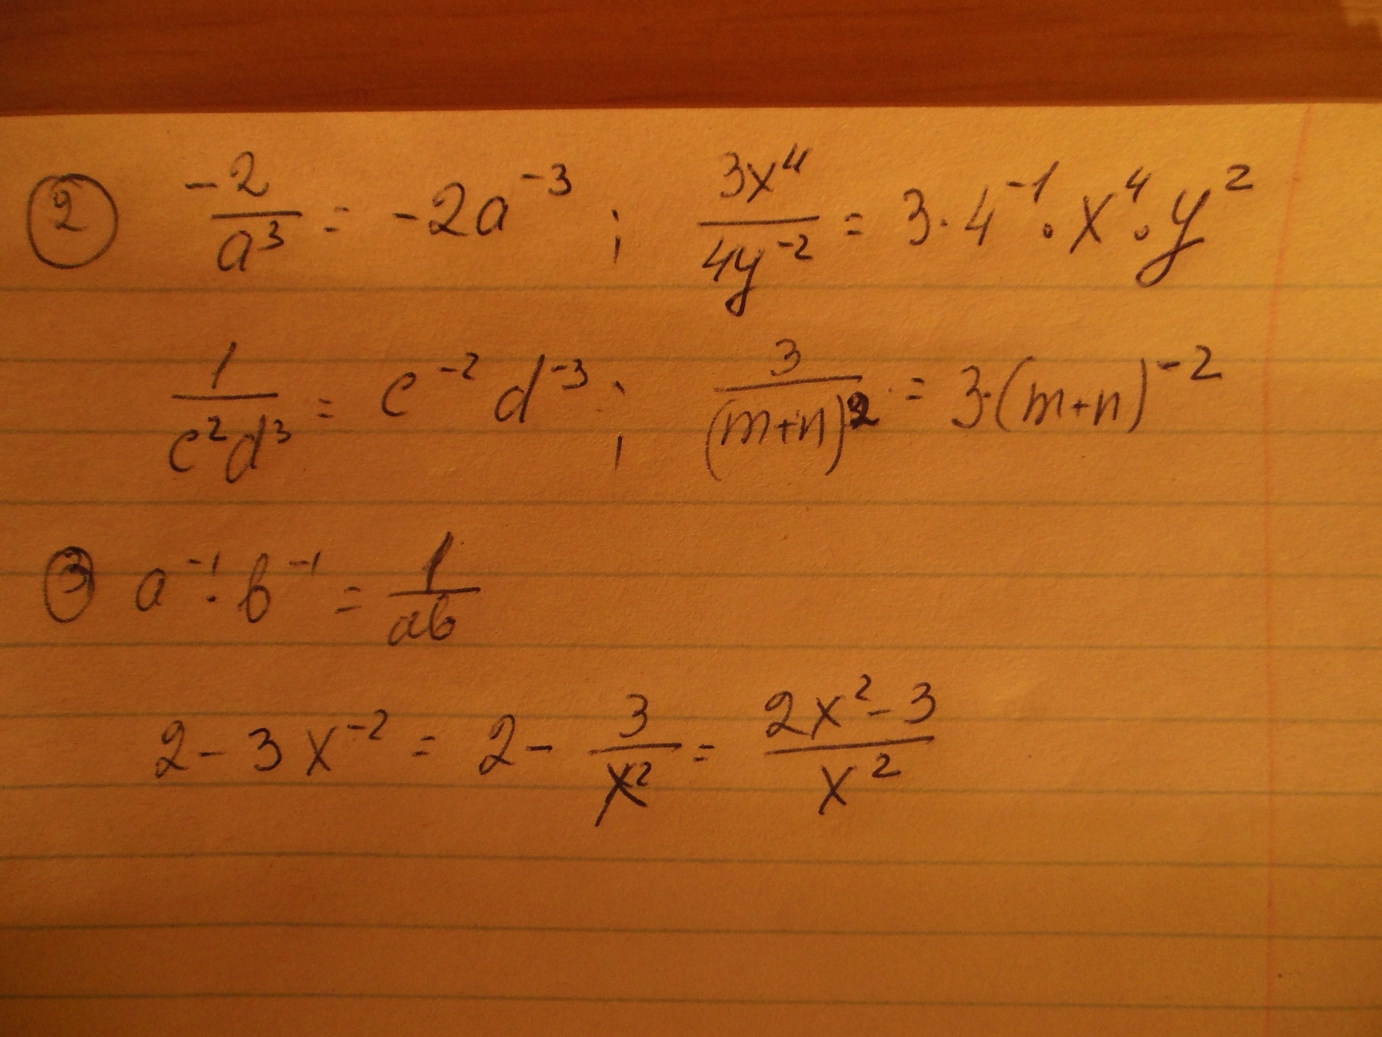 ② -2/a³ = -2a⁻³ ; 3x⁴/4y⁻² = 3·4⁻¹·x⁴·y²
1/c²d³ = c⁻²d⁻³ ; 3/(m+n)² = 3·(m+n)⁻²
③ a⁻¹·b⁻¹ = 1/ab
2-3x⁻² = 2 - 3/x² = 2x²-3/x²